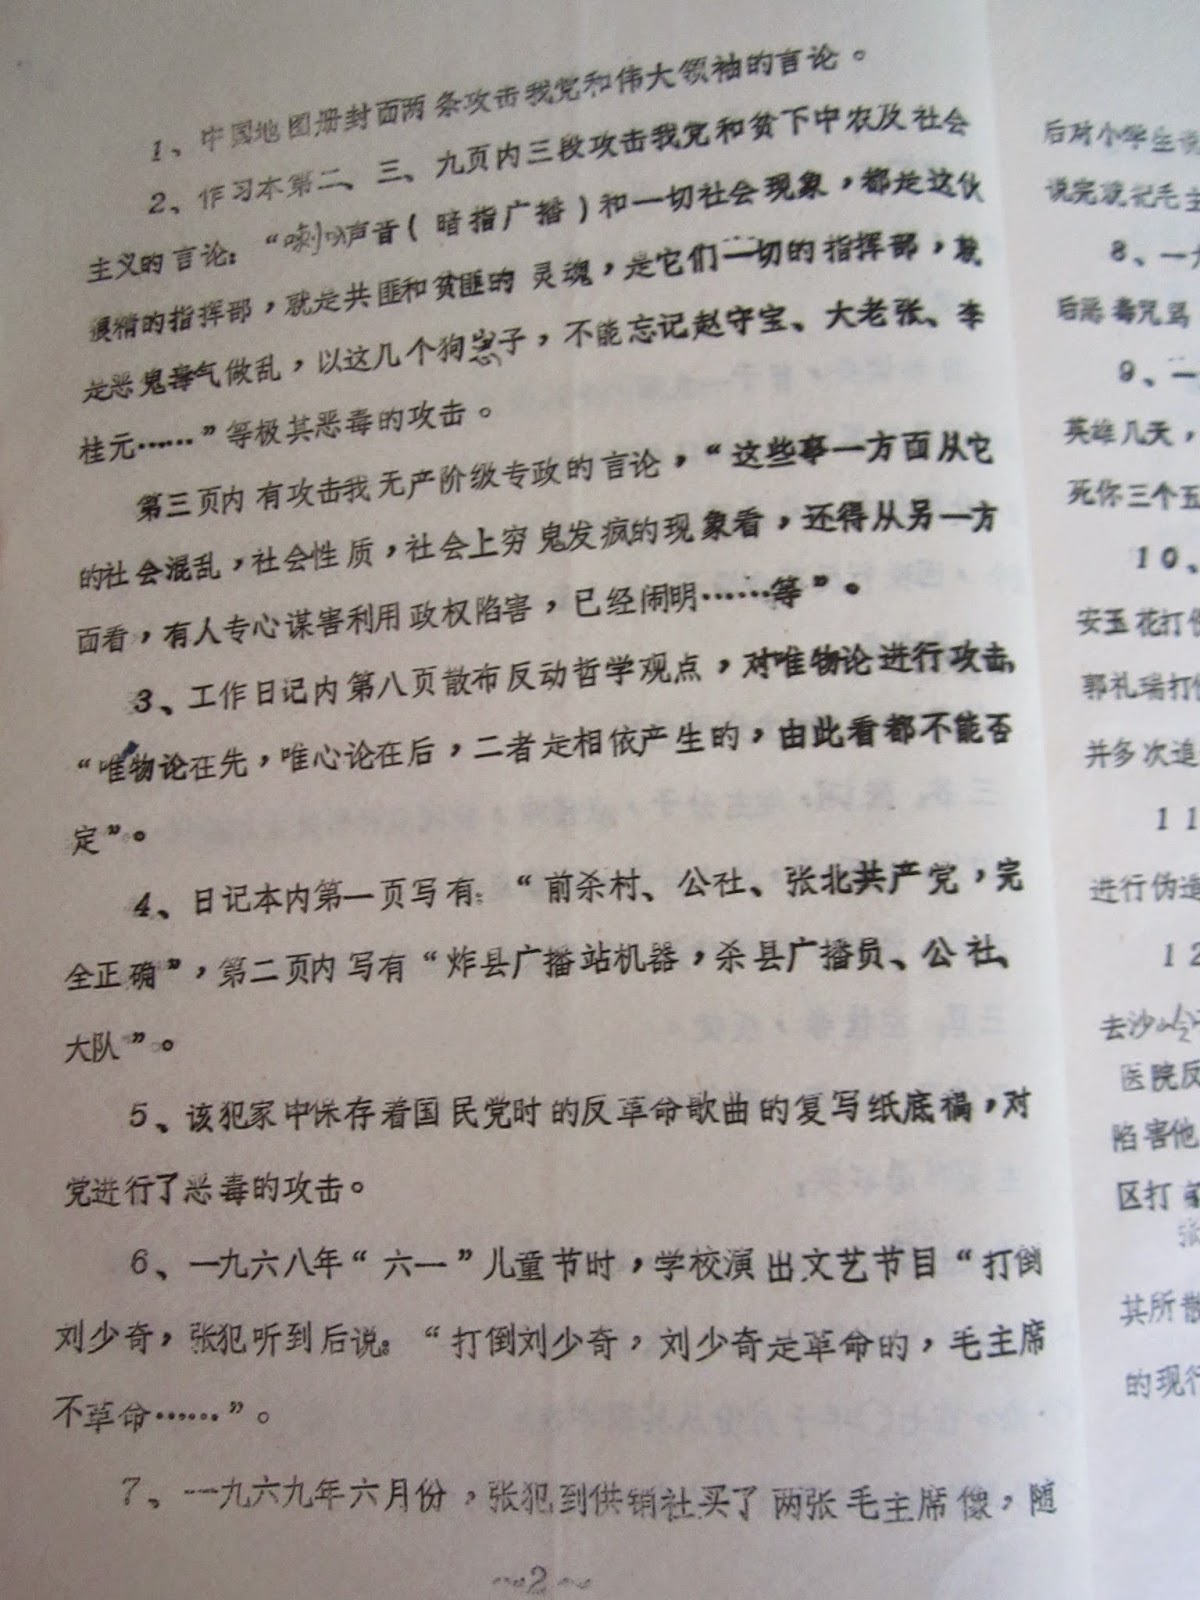 1、中国地图册封面两条攻击我党和伟大领袖的言论。
2、作习本第二、三、九页内三段攻击我党和贫下中农及社会
主义的言论：“喇叭声音(暗指广播)和一切社会现象，都是这伙
狼精的指挥部，就是共匪和贫匪的灵魂，是它们一切的指挥部，就
是恶鬼毒气做乱，以这几个狗崽子，不能忘记赵守宝、大老张、李
桂元……”等极其恶毒的攻击。
第三页内有攻击我无产阶级专政的言论，“这些事一方面从它
的社会混乱，社会性质，社会上穷鬼发疯的现象看，还得从另一方
面看，有人专心谋害利用政权陷害，已经闹明……等”。
3、工作日记内第八页散布反动哲学观点，对唯物论进行攻击，
“唯物论在先，唯心论在后，二者是相依产生的，由此看都不能否
定”。
4、日记本内第一页写有：“前杀村、公社、张北共产党，完
全正确”，第二页内写有“炸县广播站机器，杀县广播员、公社、
大队”。
5、该犯家中保存着国民党时的反革命歌曲的复写纸底稿，对
党进行了恶毒的攻击。
6、一九六八年“六一”儿童节时，学校演出文艺节目“打倒
刘少奇，张犯听到后说：“打倒刘少奇，刘少奇是革命的，毛主席
不革命……”。
7、一九六九年六月份，张犯到供销社买了两张毛主席像，随
～2～
后对小学生说
说完就把毛主
8、一九
后恶毒咒骂
9、一
英雄几天，
死你三个五
10、
安玉花打
郭礼瑞打
并多次追
11
进行伪造
12
去沙岭子
医院反
陷害他
区打
张
其所散
的现行